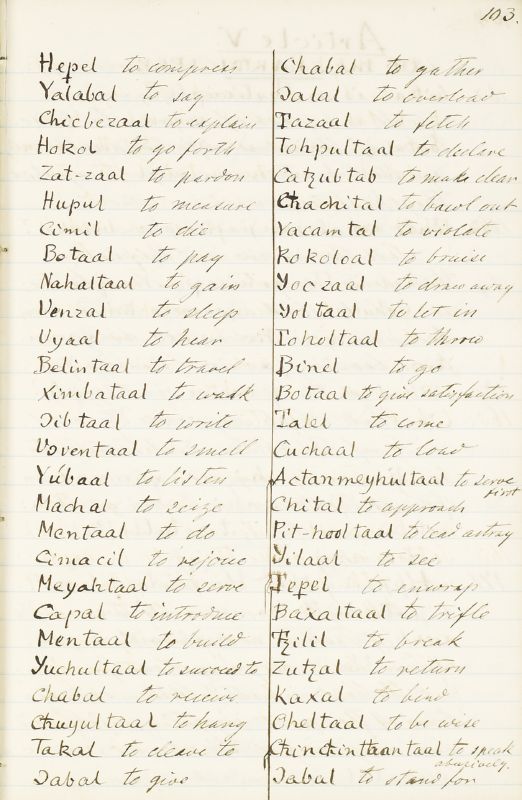 103.
Hepel to compress
Yalabal to say
Chicbezaal to explain
Hokol to go forth
Zat-zaal to pardon
Hupul to measure
Cimil to die
Botaal to pay
Nahaltaal to gain
Venzal to sleep
Uyaal to hear
Belintaal to travel
Ximbataal to walk
Dibtaal to write
Uoventaal to smell
Yúbaal to listen
Machal to seize
Mentaal to do
Cimacil to rejoice
Meyahtaal to serve
Capal to introduce
Mentaal to build
Yuchultaal to succeed to
Chabal to receive
Chuyultaal to hang
Takal to cleave to
Dabal to give
Chabal to gather
Dalal to overload
Tazaal to fetch
Tohpultaal to declare
Catzubtab to make clear
Chachital to bawl out
Yacamtal to violate
Rokoloal to bruise
Yoczaal to draw away
Yoltaal to let in
Toholtaal to throw
Binel to go
Botaal to give satisfaction
Talel to come
Cuchaal to load
Actanmeyhultaal to serve
first
Chital to approach
Pit-hooltaal to lead astray
Yilaal to see
Tepel to enwrap
Baxaltaal to trifle
Tzilil to break
Zutzal to return
Kaxal to bind
Cheltaal to be wise
Chinchinthantaal to speak
abusively.
Dabal to stand for